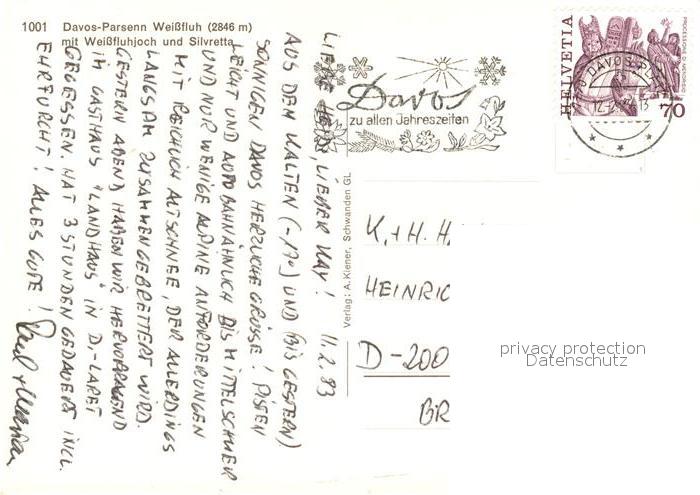 1001 Davos-Parsenn Weißfluh (2846 m)
mit Weißfluhjoch und Silvretta
11.2.83
LIEBE HEIDI, LIEBER KAY!
AUS DEM KALTEN (-17°) UND (BIS GESTERN)
SONNIGEN DAVOS HERZLICHE GRÜSSE! PISTEN
LEICHT UND AUTOBAHNÄHNLICH BIS MITTELSCHWER
UND NUR WENIGE ALPINE ANFORDERUNGEN
MIT REICHLICH ALTSCHNEE, DER ALLERDINGS
LANGSAM ZUSAMMENGEBRETTERT WIRD.
GESTERN ABEND HABEN WIR HERVORRAGEND
IM GASTHAUS "LANDHAUS" IN D.-LARET
GEGESSEN. HAT 3 STUNDEN GEDAUERT INCL.
EHRFURCHT! ALLES GUTE!
Verlag: A. Kiener, Schwanden GL
Davos
zu allen Jahreszeiten
HELVETIA
70
DAVOS PLATZ
K. + H. H.
HEINRIC
D-200
BR
privacy protection
Datenschutz